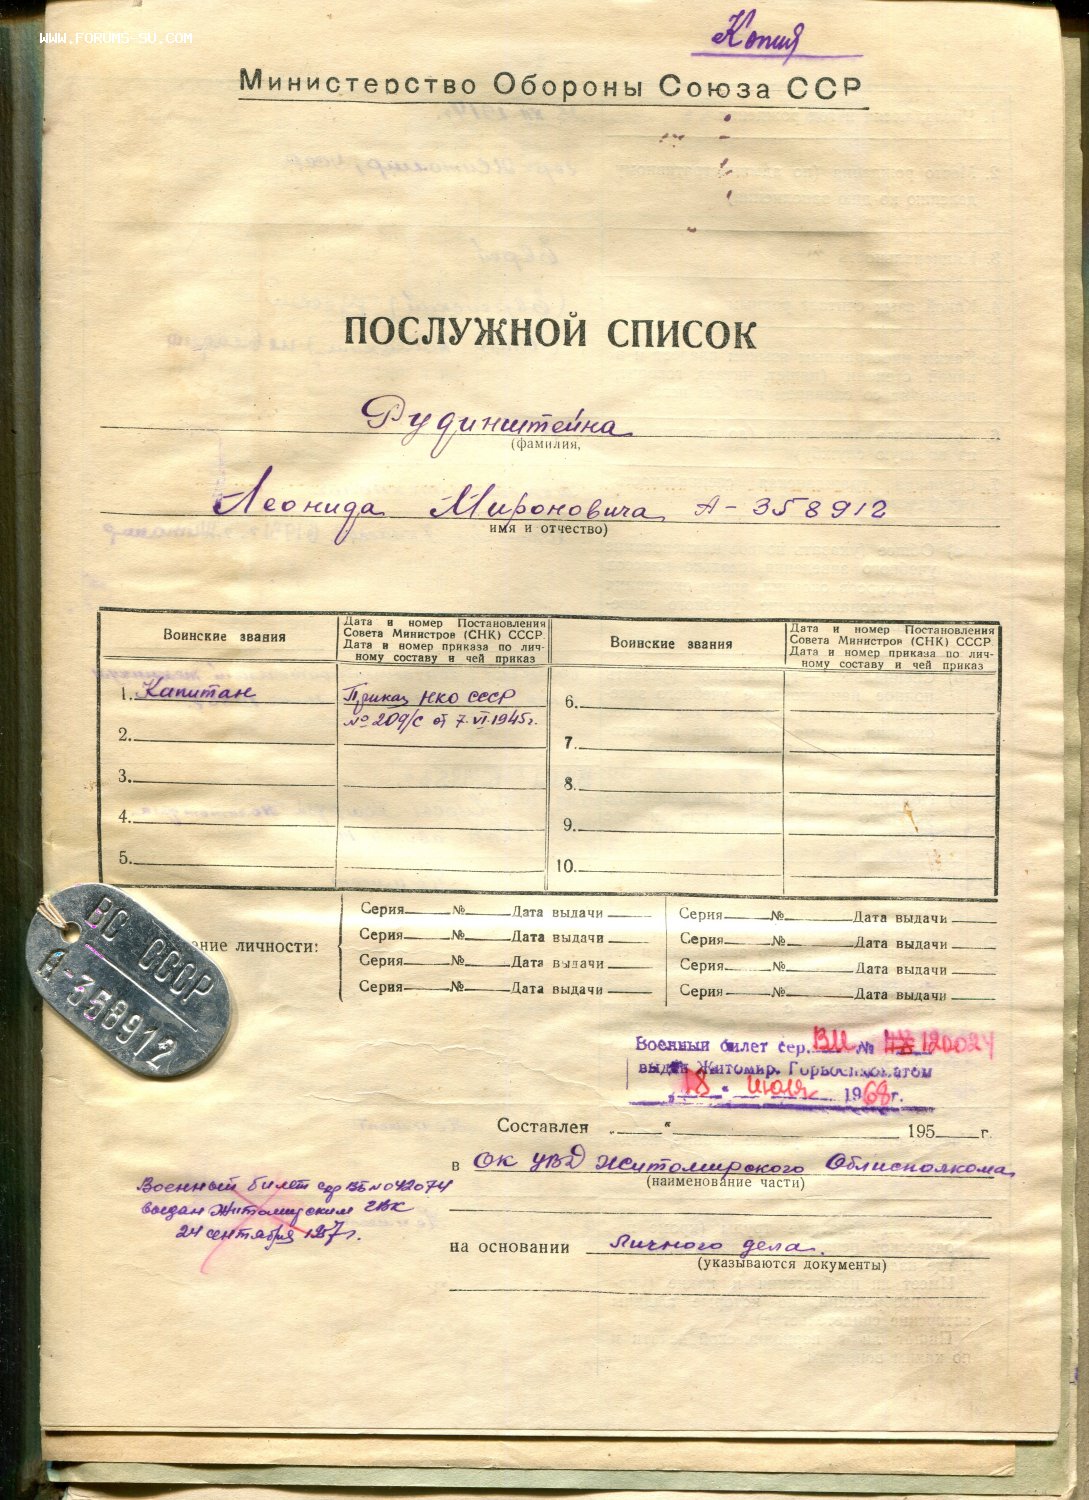 WWW.FORUMS-SU.COM
Копия
Министерство Обороны Союза ССР
ПОСЛУЖНОЙ СПИСОК
Рудинштейна
(фамилия,
Леонида Мироновича А-358912
имя и отчество)
Воинские звания
Дата и номер Постановления
Совета Министров (СНК) СССР.
Дата и номер приказа по лич-
ному составу и чей приказ
Воинские звания
Дата и номер Постановления
Совета Министров (СНК) СССР.
Дата и номер приказа по лич-
ному составу и чей приказ
1. Капитан
Приказ НКО СССР
№ 209/с от 7.VI.1945г.
2.
3.
4.
5.
6.
7.
8.
9.
10.
ение личности:
Серия № Дата выдачи
Серия № Дата выдачи
Серия № Дата выдачи
Серия № Дата выдачи
Серия № Дата выдачи
Серия № Дата выдачи
Серия № Дата выдачи
Серия № Дата выдачи
ВС СССР
А-358912
Военный билет сер. ВИ № 120024
выдан Житомир. Горвоенкоматом
"18" июля 1968г.
Составлен „ “ 195 г.
в ОК УВД Житомирского Облисполкома
(наименование части)
Военный билет сер ВБ № 042074
выдан Житомирским ГВК
24 сентября 1957г.
на основании Личного дела.
(указываются документы)